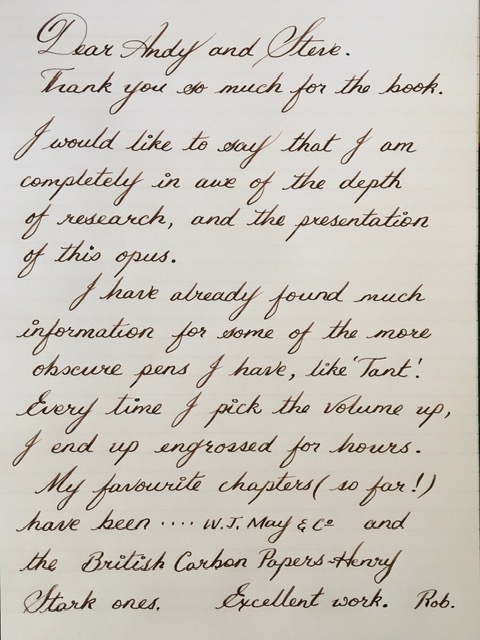 Dear Andy and Steve.
Thank you so much for the book.
I would like to say that I am
completely in awe of the depth
of research, and the presentation
of this opus.
I have already found much
information for some of the more
obscure pens I have, like 'Tant'.
Every time I pick the volume up,
I end up engrossed for hours.
My favourite chapters (so far!)
have been .... W.J. May & Co and
the British Carbon Papers-Henry
Stark ones. Excellent work. Rob.